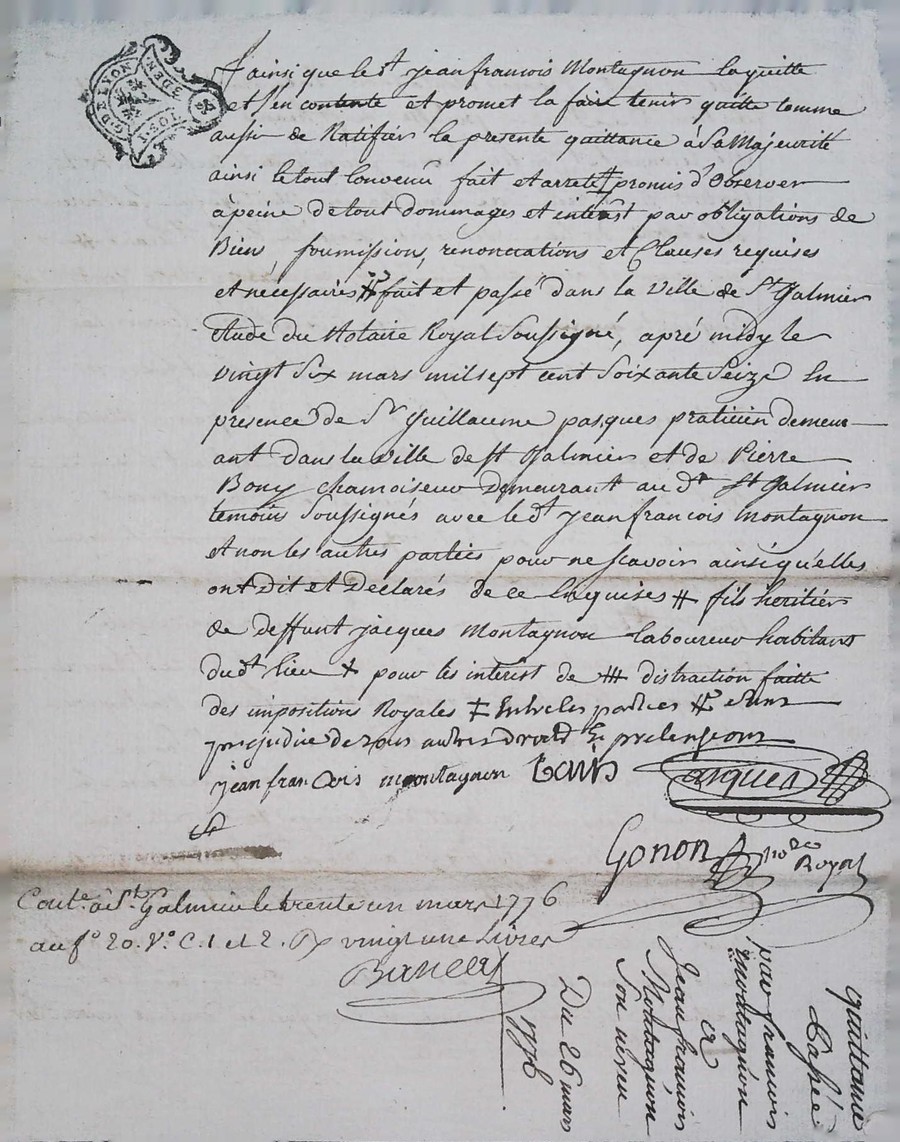 G. DE LYON 3 DEN
1 SOL
ainsi que led.t jean francois Montagnon la quitte
et s'en contente et promet la faire tenir quitte comme
aussi de Ratifier la presente quittance à Sa Majeurité
ainsi letout Convenu fait et areté ‡ promis d'Observer
à peine detout Dommages et interest par obligations de
Bien, soumission, renonciations et Clauses requises
et nécessaires # fait et passé dans la Ville de S.t Galmier
Etude du Notaire Royal Soussigné, apré midy le
vingt Six mars mil sept cent Soixante Seize En
presence de S.r Guillaume pasques praticien demeur
ant dans la Ville de St Galmier et de Pierre
Bony chamoiseur Demeurant au d.t St Galmier
temoins Soussignés avec led.t jean francois montagnon
et non les autres parties pour ne scavoir ainsi qu'elles
ont Dit et Déclarés de ce Enquises # fils heritier
de deffunt jacques Montagnon laboureur habitant
dud.t lieu + pour les interist de ## distraction faitte
des impositions Royales ‡ Entre les parties # et sans
prejudice de tous autres droits & pretensions
jean francois montagnon Bonis Pasques
Gonon no.re Royal
Cont.é à S.t Galmier le trente un mars 1776
au f.o 20. V.o C. 1 et 2. vingt une Livres
quittance
Passée
par francois
montagnon
a
Jean françois
Montagnon
Son neveu
Du 26 mars
1776